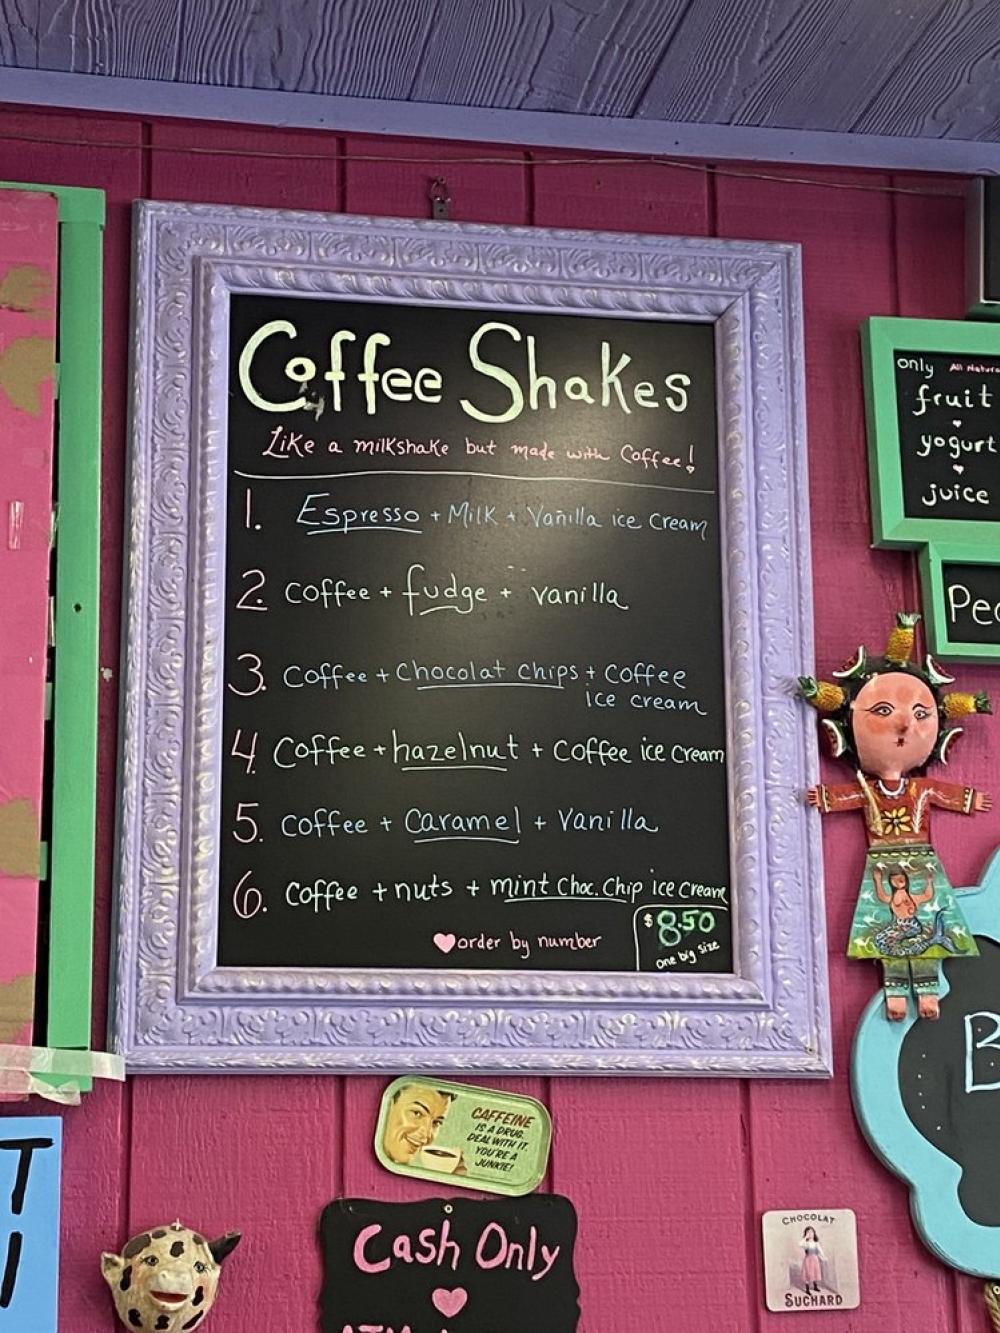 Coffee Shakes
Like a milkshake but made with Coffee!
1. Espresso + Milk + Vanilla ice cream
2. coffee + fudge + vanilla
3. coffee + Chocolat chips + coffee
ice cream
4. coffee + hazelnut + coffee ice cream
5. coffee + caramel + vanilla
6. coffee + nuts + mint choc. chip ice cream
order by number
$8.50
one big size
only All Natura
fruit
yogurt
juice
Pe
CAFFEINE
IS A DRUG.
DEAL WITH IT.
YOU'RE A
JUNKIE!
Cash Only
CHOCOLAT
SUCHARD
B
T
I